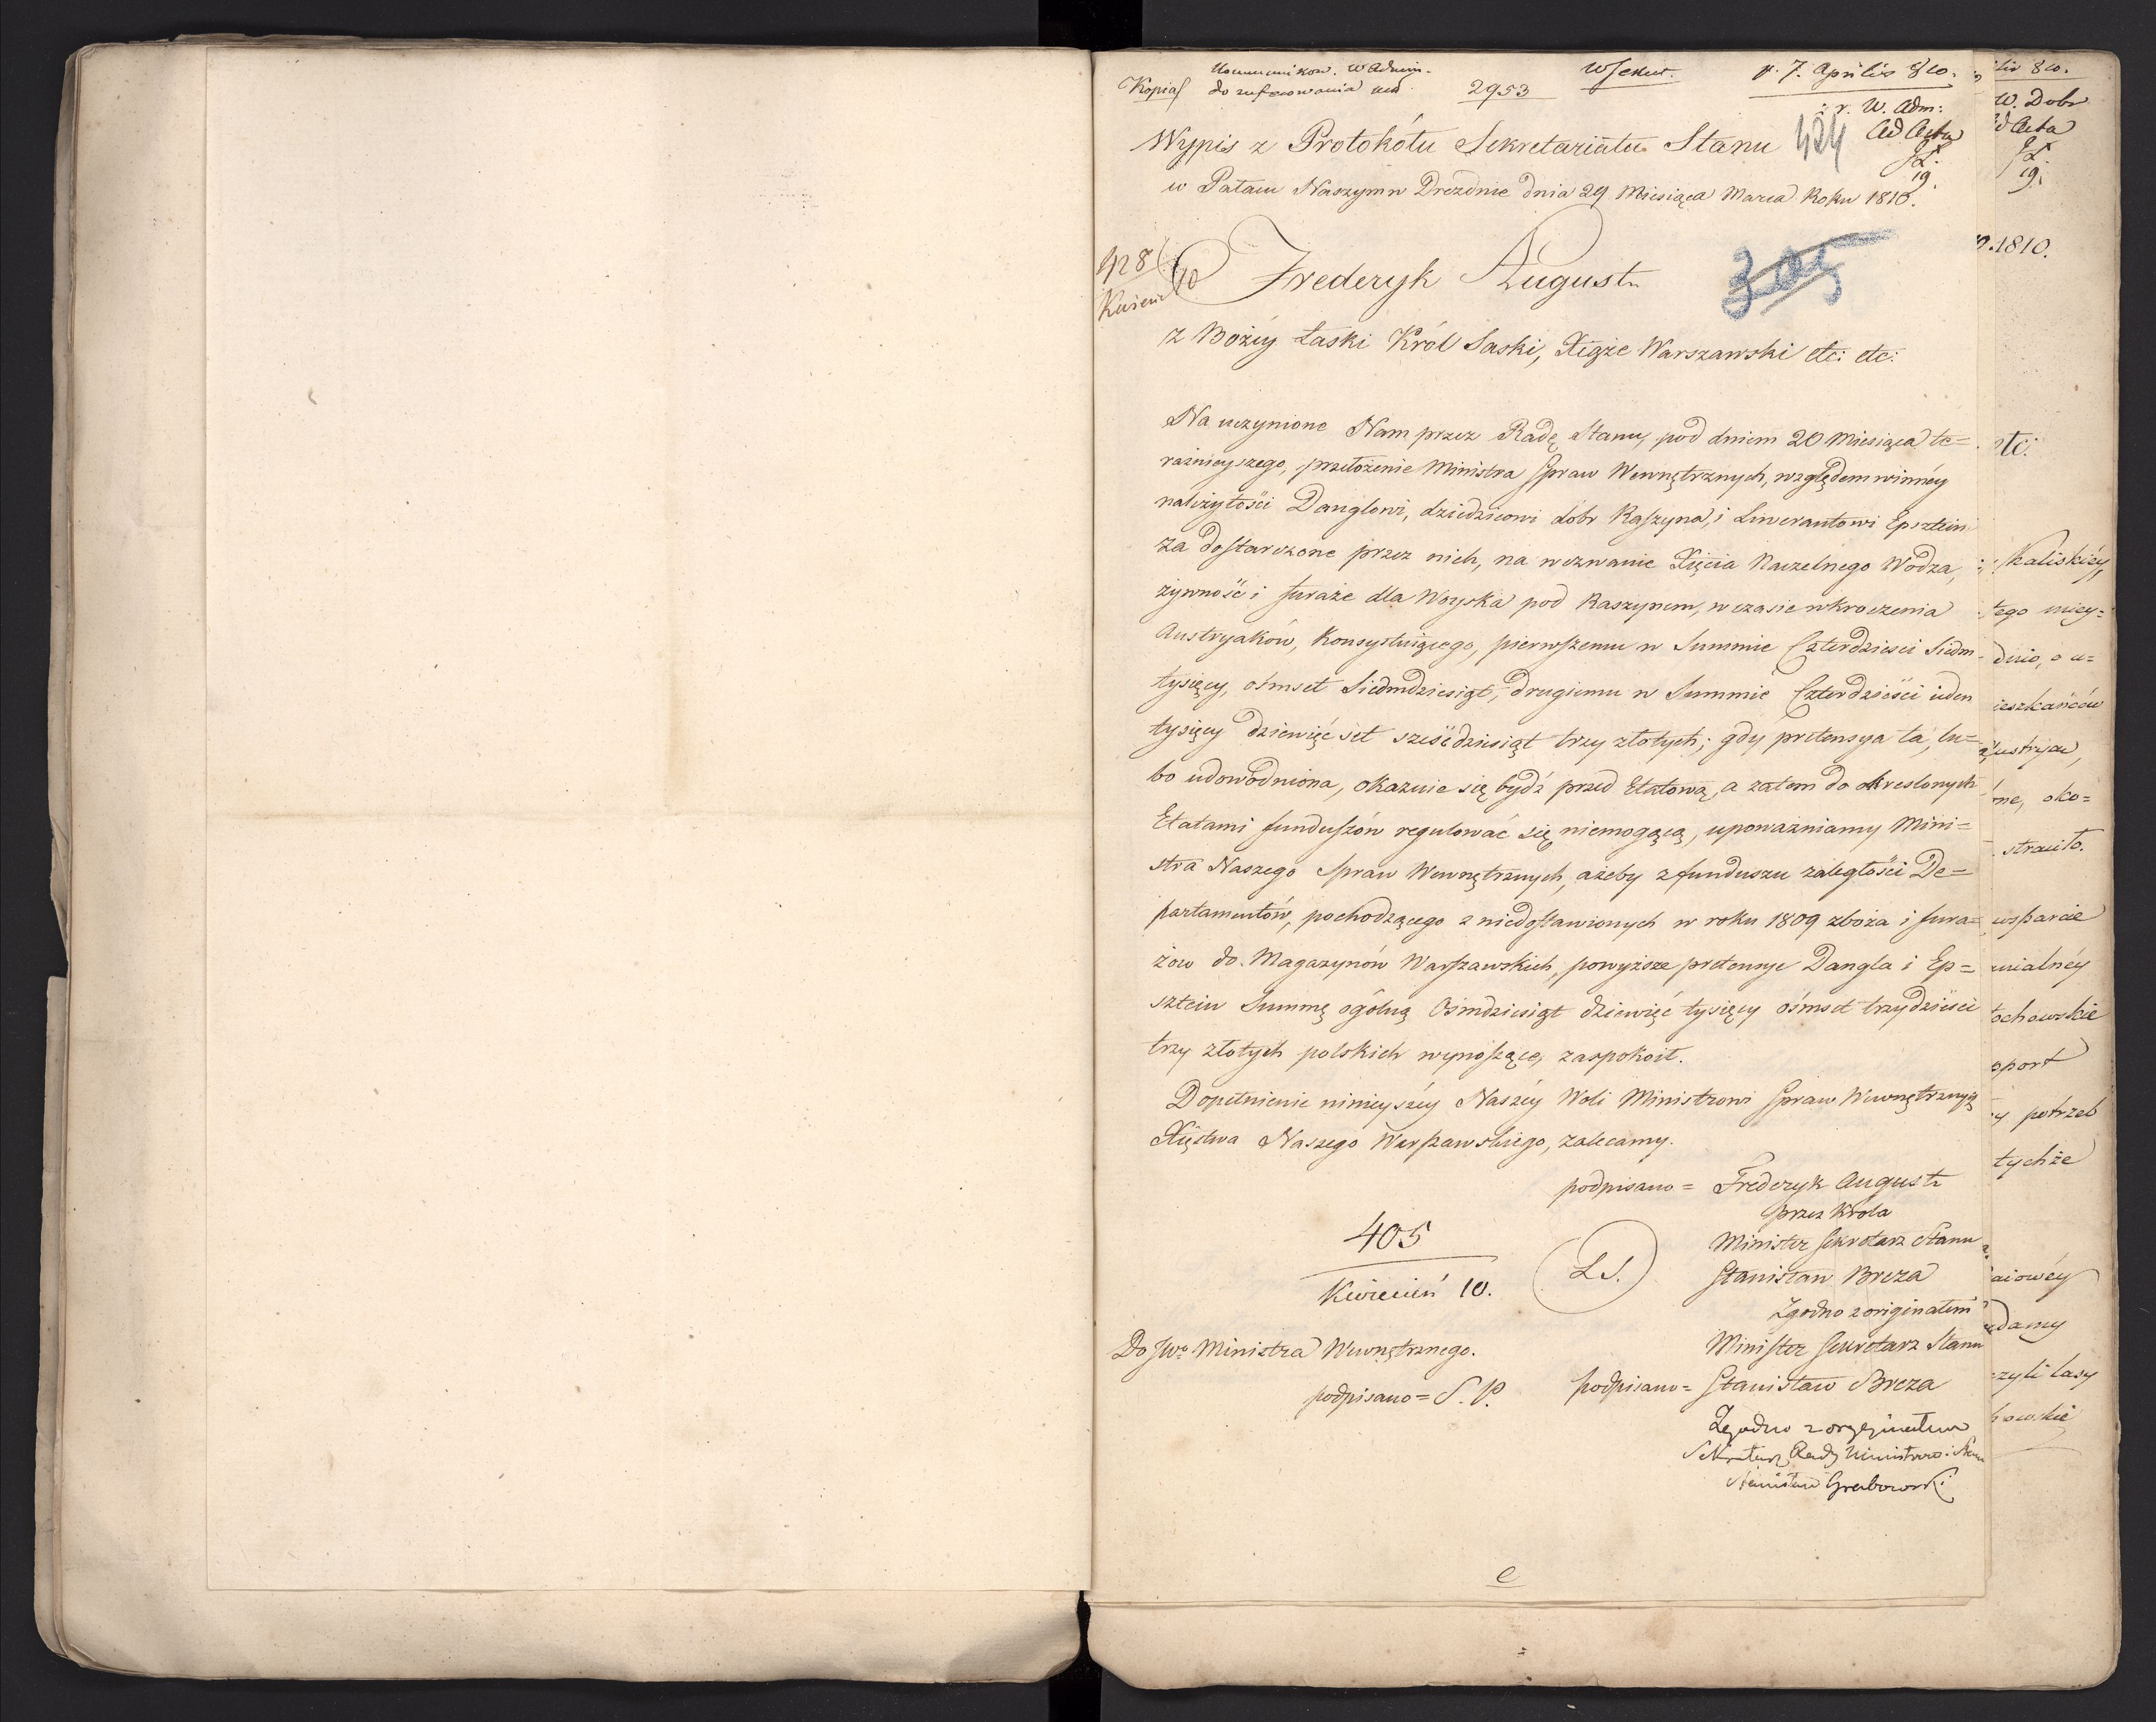 Kopia
do
2953
p. 7. Aprilis 810.
W. Adm:
Ad Acta
19.
Wypis z Protokółu Sekretariatu Stanu
424
w Pałacu Naszym w Dreźdnie dnia 29 Miesiąca Marca Roku 1810.
428
10
305
Frederyk August
z Bożey Łaski Król Saski, Xiąże Warszawski etc: etc:
Na uczynione Nam przez Radę Stanu, pod dniem 20 Miesiąca te=
raźnieyszego, przełożenie Ministra Spraw Wewnętrznych, względem winnéy
należytości Danglowi, dziedzicowi dóbr Raszyna, i Liwerantowi Epsztein
za dostarczone przez nich, na wezwanie Xięcia Naczelnego Wodza,
żywność i furaże dla Woyska pod Raszynem, w czasie wkroczenia
Austryaków, Konsystuiącego, pierwszemu w Summie Czterdzieści Siedm
tysięcy, ośmset Siedmdziesiąt, drugiemu w Summie Czterdzieści ieden
tysięcy dziewięćset sześćdziesiąt trzy złotych; gdy pretensya ta, lu=
bo udowodniona, okazuie się bydź przed Etatową, a zatem do okreslonych
Etatami funduszów regulować się niemogącą, upoważniamy Mini=
stra Naszego Spraw Wewnętrznych, ażeby z funduszu zaległości De=
partamentów, pochodzącego z niedostawionych w roku 1809 zboża i fura=
żów do Magazynów Warszawskich, powyższe pretensye Dangla i Ep=
sztein Summę ogólną Ośmdziesiąt dziewięć tysięcy ośmset trzydzieści
trzy złotych polskich wynoszące, zaspokoił.
Dopełnienie ninieyszéy Naszéy Woli Ministrowi Spraw Wewnętrznych
Xięstwa Naszego Warszawskiego, zalecamy.
podpisano = Frederyk August
przez Króla
Minister Sekretarz Stanu
405
L.S.
Stanisław Breza
Kwiecień 10.
Zgodno z originałem
Do JWo Ministra Wewnętrznego.
Minister Sekretarz Stanu
podpisano = S. P.
podpisano = Stanisław Breza
Zgodno z oryginałem
Sekretarz Rady Ministrów i Stanu
Stanisław Grabowski
e
810.
W. Dobr
Ad Acta
19.
.1810.
etc:
Kaliskiéy,
tego miey=
ieszkańców
oko=
wsparcie
port
potrzeb
tychże
damy
czyli lasy